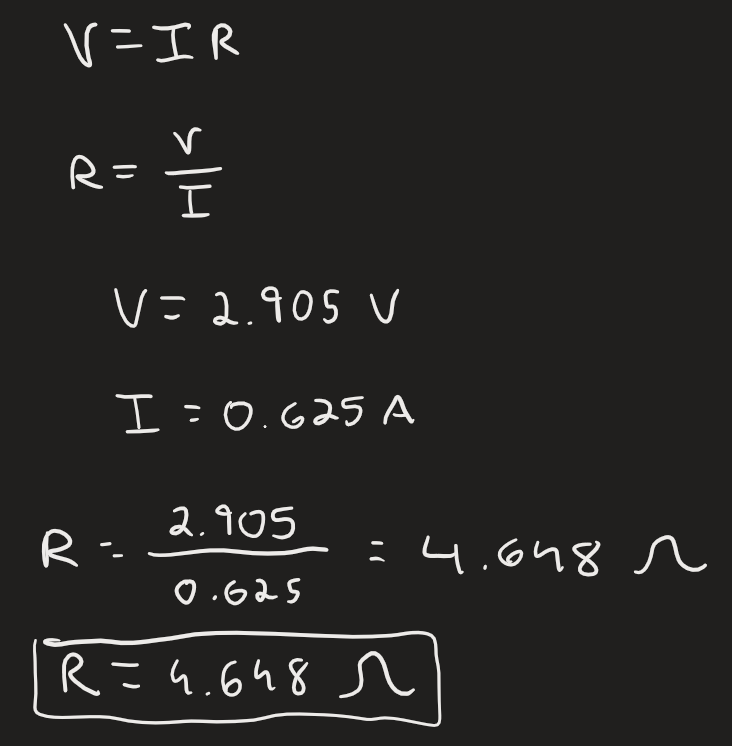 V = I R
R = V / I
V = 2.905 V
I = 0.625 A
R = 2.905 / 0.625 = 4.648 Ω
R = 4.648 Ω